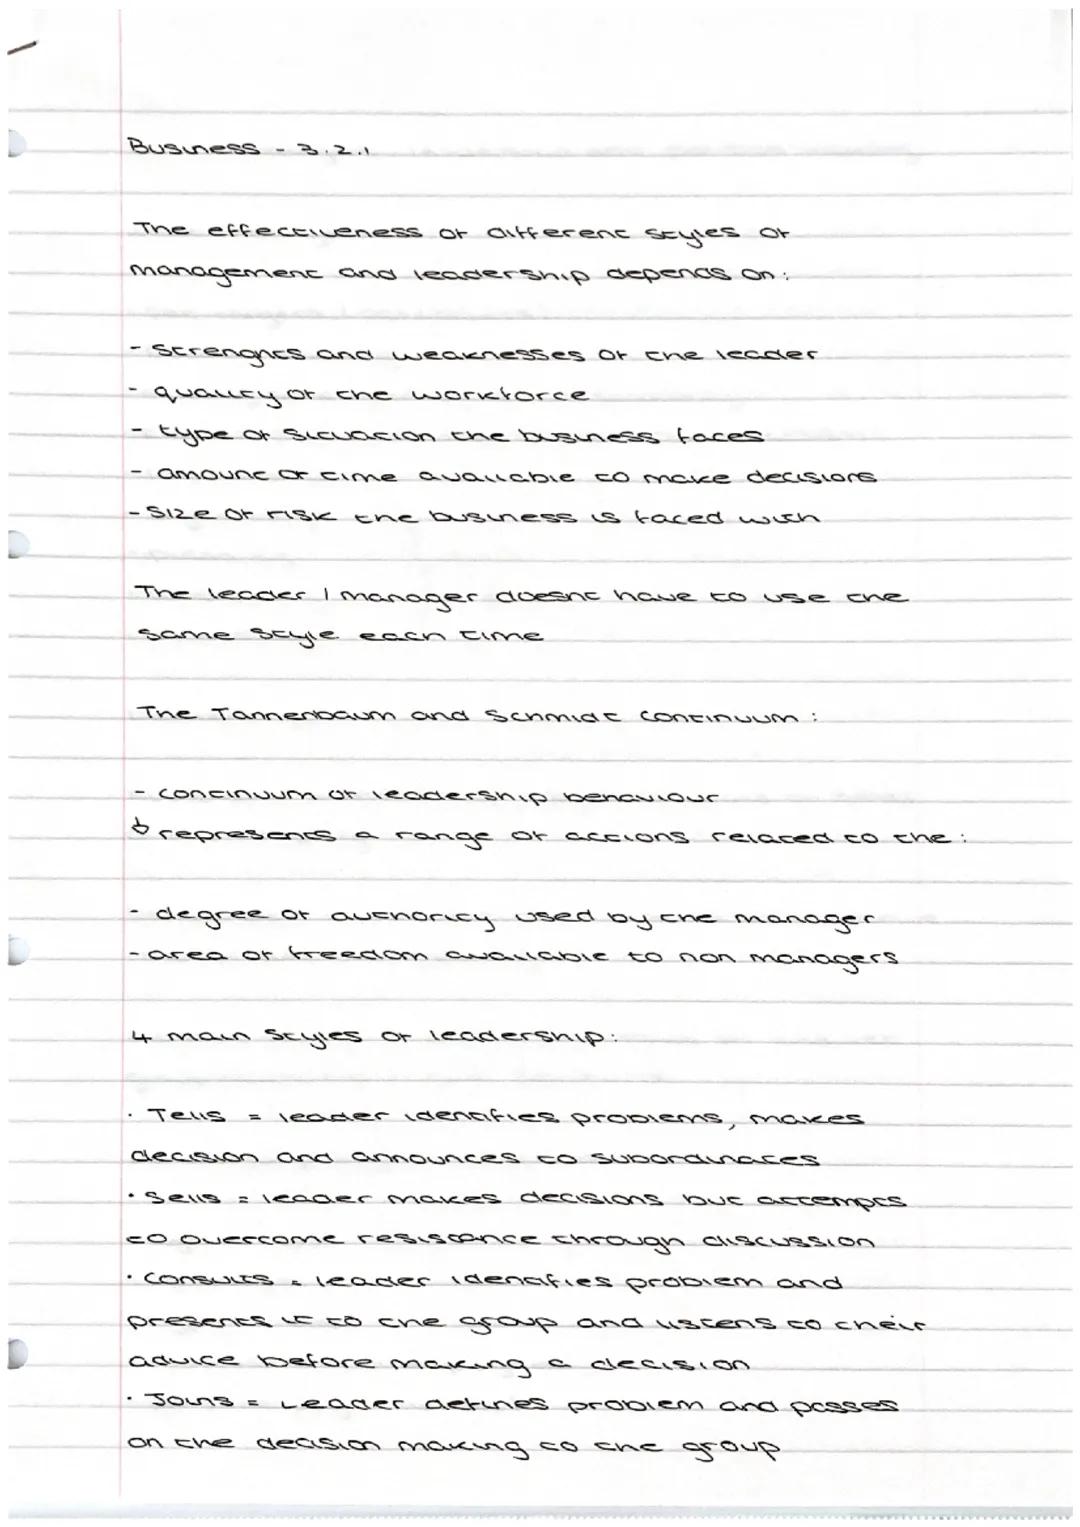 Business - 3.2.1
The effectiveness of different styles of
management and leadership depends on:
- strenghts and weaknesses of the leader
- quality of the workforce
- type of situation the business faces
- amount of time available to make decisions
- size of risk the business is faced with
The leader / manager doesnt have to use the
same style each time
The Tannenbaum and Schmidt continuum :
- continuum of leadership behaviour
↳ represents a range of actions related to the :
- degree of authority used by the manager
- area of freedom available to non managers
4 main styles of leadership:
· Tells = leader identifies problems, makes
decision and announces to subordinates
· Sells = leader makes decisions but attempts
to overcome resistance through discussion
· Consults = leader identifies problem and
presents it to the group and listens to their
advice before making a decision
· Joins = Leader defines problem and passes
on the decision making to the group